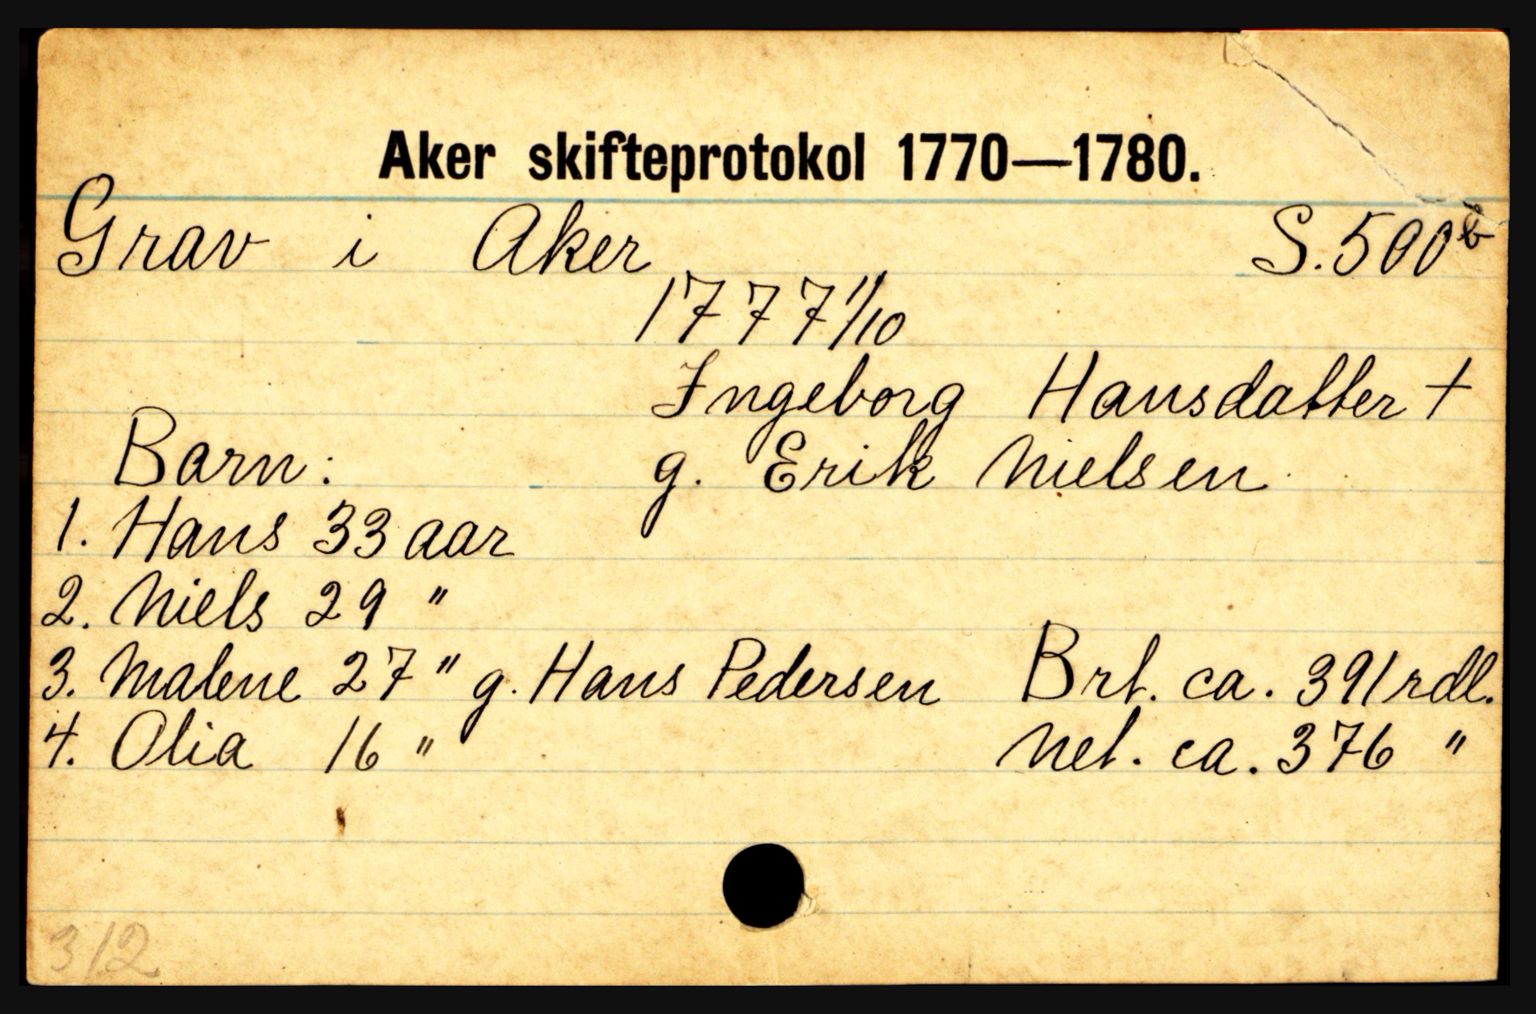 Aker skifteprotokol 1770—1780.
Grav i Aker S. 500b
1777 1/10
Ingeborg Hansdatter +
Barn: g. Erik Nielsen
1. Hans 33 aar
2. Niels 29 "
3. Malene 27 " g. Hans Pedersen Brt. ca. 391 rdl.
4. Olia 16 " Net. ca. 376 "
312